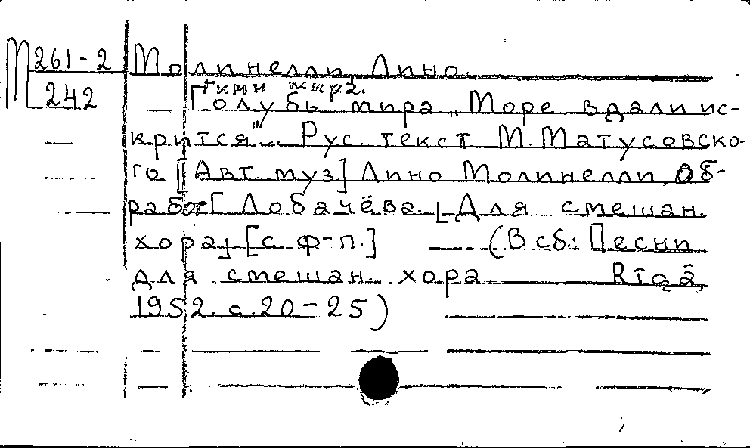 М 261-2 Молинелли, Лино.
Гимн мира.
242 — Голубь мира „Море вдали ис-
крится“... Рус. текст М. Матусовско-
го [Авт. муз.] Лино Молинелли, Об-
работ. Г. Лобачёва. [Для смешан.
хора] [с ф-п.] — (В сб.: Песни
для смешан. хора Rīgā,
1952. с. 20-25)